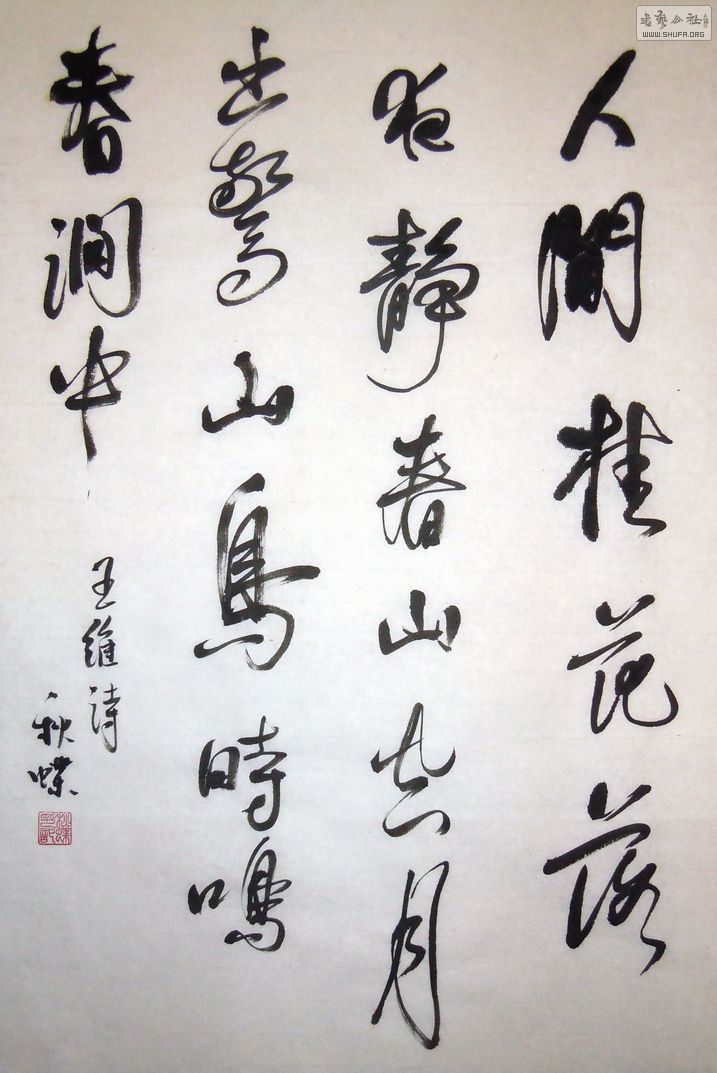 人間桂花落
夜靜春山空月
出驚山鳥時鳴
春澗中
王維詩
秋蝶
書藝公社
WWW.SHUFA.ORG